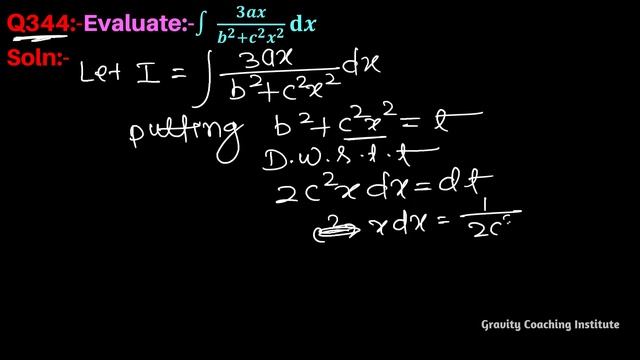 Q344:-Evaluate:-∫ 3ax / b²+c²x² dx
Soln:- Let I = ∫ 3ax / b²+c²x² dx
putting b²+c²x² = t
D.w.s.t.t
2c²x dx = dt
x dx = 1 / 2c
Gravity Coaching Institute